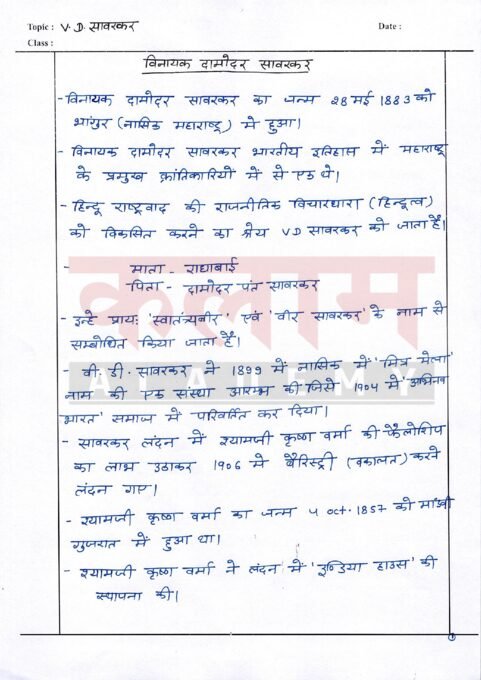 Topic : V.D. सावरकर Date :
Class :
विनायक दामोदर सावरकर
- विनायक दामोदर सावरकर का जन्म 28 मई 1883 को
भांगुर (नासिक महाराष्ट्र) मे हुआ।
- विनायक दामोदर सावरकर भारतीय इतिहास में महाराष्ट्र
के प्रमुख क्रांतिकारियों में से एक थे।
- हिन्दू राष्ट्रवाद की राजनीतिक विचारधारा (हिन्दुत्व)
को विकसित करने का श्रेय VD सावरकर को जाता है।
- माता - राधाबाई
पिता - दामोदर पंत सावरकर
- इन्हे प्राय: 'स्वातंत्र्यवीर' एवं 'वीर सावरकर' के नाम से
सम्बोधित किया जाता है।
- वी. डी. सावरकर ने 1899 में नासिक में 'मित्र मेला'
नाम की एक संस्था आरम्भ की जिसे 1904 में 'अभिनव
भारत' समाज में परिवर्तित कर दिया।
- सावरकर लंदन में श्यामजी कृष्णा वर्मा की फैलोशिप
का लाभ उठाकर 1906 मे बैरिस्ट्री (वकालत) करने
लंदन गए।
- श्यामजी कृष्णा वर्मा का जन्म 4 oct. 1857 को मांडवी
गुजरात में हुआ था।
- श्यामजी कृष्णा वर्मा ने लंदन में 'इण्डिया हाउस' की
स्थापना की।
कलाम
ACADEMY
1